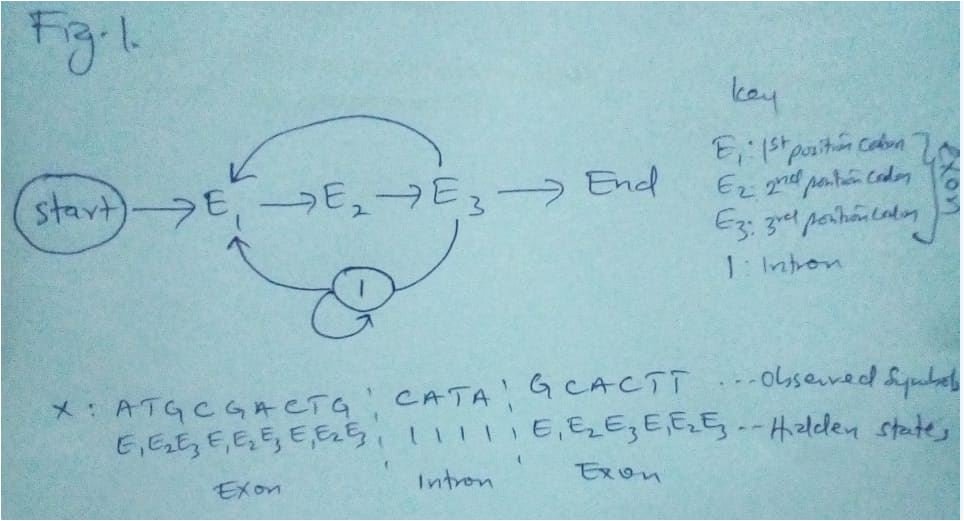 Fig. 1.
key
E1: 1st position codon
E2: 2nd position codon
E3: 3rd position codon
Exon
1: Intron
start E1 E2 E3 End
1
X: ATGCGACTG CATA GCACTT ...Observed Symbols
E1E2E3 E1E2E3 E1E2E3 1 1 1 1 1 E1E2E3E1E2E3 -- Hidden states
Exon Intron Exon